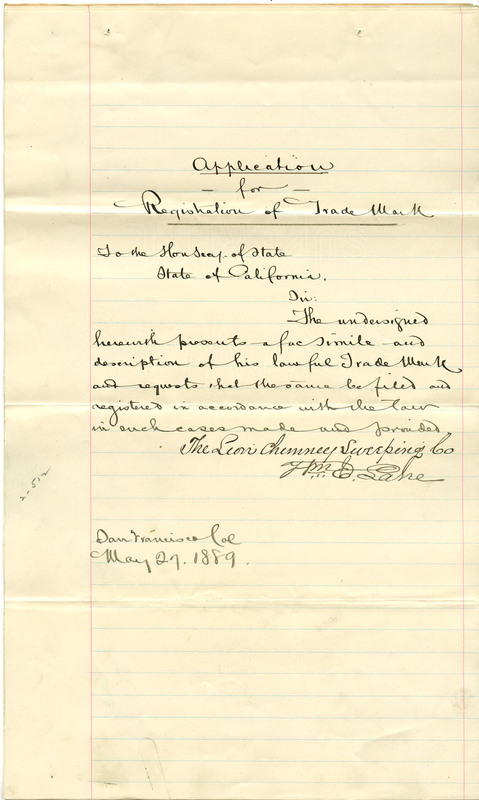 Application
— for —
Registration of Trade Mark
To the Hon Secy. of State
State of California.
Sir:
The undersigned
herewith presents a fac simile and
description of his lawful Trade Mark
and requests that the same be filed and
registered in accordance with the law
in such cases made and provided
The Lion Chimney Sweeping Co
Wm E. Lane
San Francisco Cal
May 27. 1889.